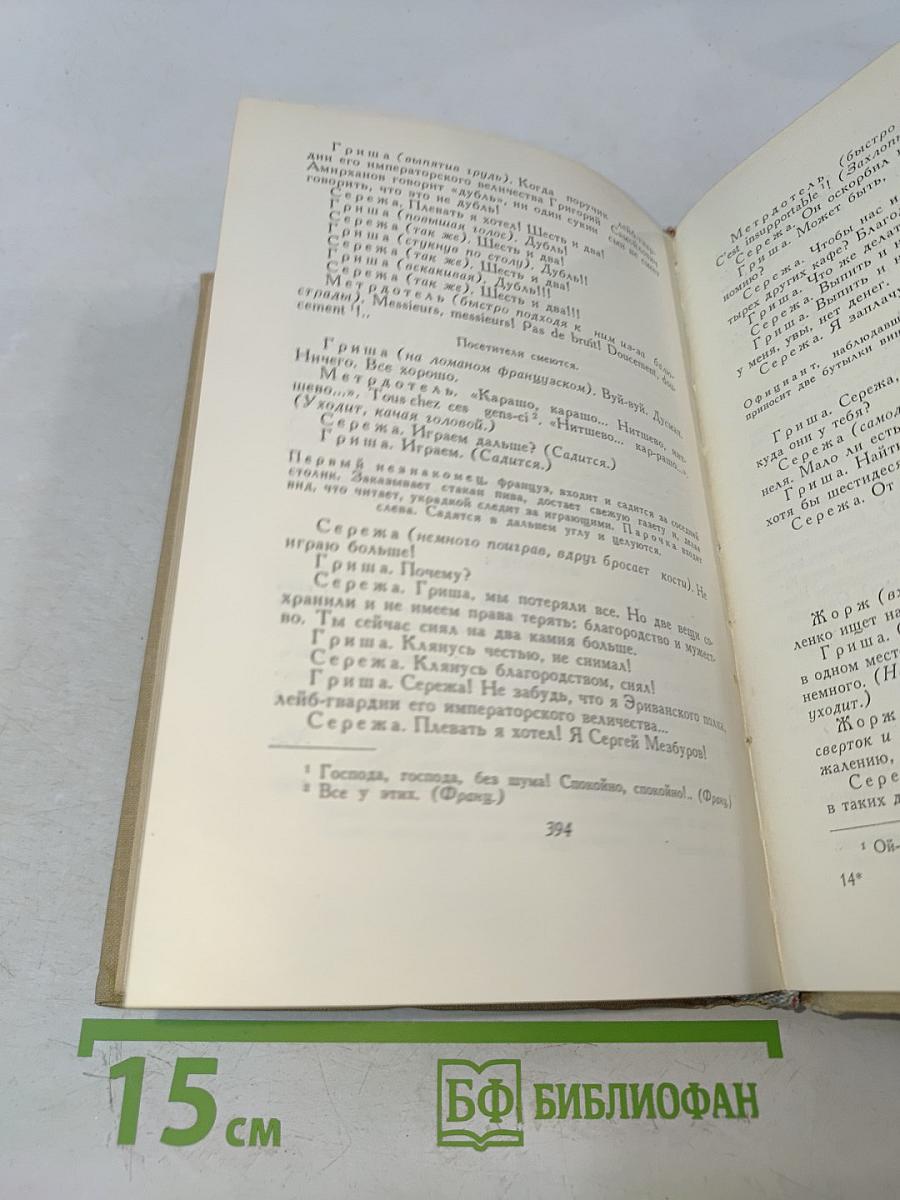 Гриша (выпятив грудь). Когда поручик лейб-гвар-
дии его императорского величества Григорий Самойлович
Амирханов говорит «дубль», ни один сукин сын не смеет
говорить, что это не дубль!
Сережа. Плевать я хотел! Шесть и два!
Гриша (повышая голос). Дубль!
Сережа (так же). Шесть и два!
Гриша (стукнув по столу). Дубль!!
Сережа (так же). Шесть и два!
Гриша (вскакивая). Дубль!!!
Сережа (так же). Шесть и два!!!
Метрдотель (быстро подходя к ним из-за балю-
страды). Messieurs, messieurs! Pas de bruit! Doucement, dou-
cement ¹!..
Посетители смеются.
Гриша (на ломаном французском). Вуй-вуй. Дусман.
Ничего. Все хорошо.
Метрдотель. «Карашо, карашо... Нитшево, нит-
шево...». Tous chez ces gens-ci ². «Нитшево... кар-рашо...»
(Уходит, качая головой.)
Сережа. Играем дальше? (Садится.)
Гриша. Играем. (Садится.)
Первый незнакомец, француз, входит и садится за соседний
столик. Заказывает стакан пива, достает свежую газету и, делая
вид, что читает, украдкой следит за играющими. Парочка входит
слева. Садятся в дальнем углу и целуются.
Сережа (немного поиграв, вдруг бросает кости). Не
играю больше!
Гриша. Почему?
Сережа. Гриша, мы потеряли все. Но две вещи со-
хранили и не имеем права терять: благородство и мужест-
во. Ты сейчас снял на два камня больше.
Гриша. Клянусь честью, не снимал!
Сережа. Клянусь благородством, снял!
Гриша. Сережа! Не забудь, что я Эриванского полка
лейб-гвардии его императорского величества...
Сережа. Плевать я хотел! Я Сергей Мезбуров!
¹ Господа, господа, без шума! Спокойно, спокойно!.. (Франц.)
² Все у этих. (Франц.)
394
Метрдотель (быстро
C'est insupportable ¹! (Захлоп
Сережа. Он оскорбил н
Гриша. Может быть,
номию?
Сережа. Чтобы нас и
тырех других кафе? Благо
Гриша. Что же делат
Сережа. Выпить и н
Гриша. Выпить и
у меня, увы, нет денег.
Сережа. Я заплачу
Официант, наблюдавш
приносит две бутылки вин
Гриша. Сережа,
куда они у тебя?
Сережа (самод
неля. Мало ли есть
Гриша. Найти
хотя бы шестидеся
Сережа. От
Жорж (вх
ленко ищет на
Гриша. С
в одном мест
немного. (На
уходит.)
Жорж
сверток и
жалению,
Сере
в таких д
¹ Ой-
14*
15 см
БФ БИБЛИОФАН